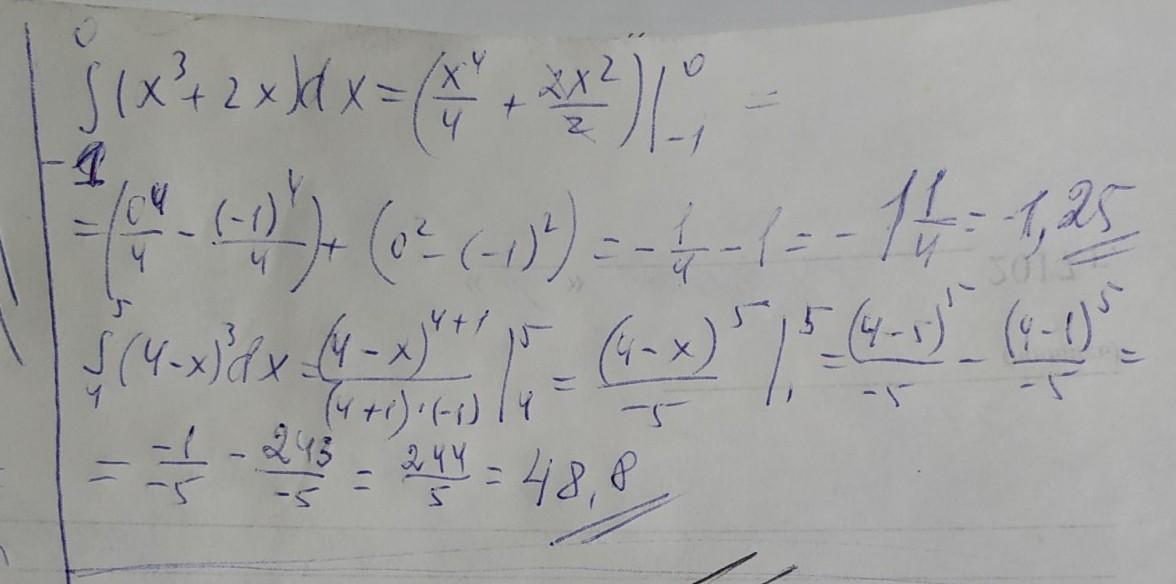 ∫₋₁⁰ (x³ + 2x)dx = (x⁴/4 + 2x²/2)|₋₁⁰ =
= (0⁴/4 - (-1)⁴/4) + (0² - (-1)²) = -1/4 - 1 = -1 1/4 = -1,25
∫₄⁵ (4-x)³dx = (4-x)⁴⁺¹/((4+1)·(-1)) |₄⁵ = (4-x)⁵/-5 |₁⁵ = (4-5)⁵/-5 - (4-1)⁵/-5 =
= -1/-5 - 243/-5 = 244/5 = 48,8